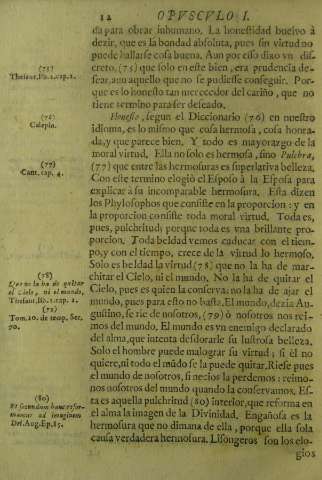 12 OPVSCVLO I.
da para obrar inhumano. La honestidad buelvo à
dezir, que es la bondad absoluta, pues sin virtud no
puede hallarse cosa buena. Aun por esso dixo vn dis-
creto, (75) que solo en este bien, era prudencia de-
sear, aun aquello que no se pudiesse conseguir. Por-
que es lo honesto tan merecedor del cariño, que no
tiene termino para ser deseado.
Honesto, segun el Diccionario (76) en nuestro
idioma, es lo mismo que cosa hermosa, cosa honra-
da, y que parece bien. Y todo es mayorazgo de la
moral virtud. Ella no solo es hermosa, sino Pulchra,
(77) que entre las hermosuras es superlativa belleza.
Con este termino elogiò el Esposo à la Esposa para
explicar à su incomparable hermosura. Esta dizen
los Phylosophos que consiste en la proporcion: y en
la proporcion consiste toda moral virtud. Toda es,
pues, pulchritud; porque toda es vna brillante pro-
porcion. Toda beldad vemos caducar con el tiem-
po, y con el tiempo, crece de la virtud lo hermoso.
Solo es beldad la virtud (78) que no la ha de mar-
chitar el Cielo, ni el mundo. No la ha de quitar el
Cielo, pues es quien la conserva: no la ha de ajar el
mundo, pues para esto no basta. El mundo, dezia Au-
gustino, se rie de nosotros, (79) ò nosotros nos rei-
mos del mundo. El mundo es vn enemigo declarado
del alma, que intenta desdorarle su lustrosa belleza.
Solo el hombre puede malograr su virtud; si èl no
quiere, ni todo el mũdo se la puede quitar. Riese pues
el mundo de nosotros, si necios la perdemos: reimo-
nos nosotros del mundo quando la conservamos. Es-
ta es aquella pulchritud (80) interior, que reforma en
el alma la imagen de la Divinidad. Engañosa es la
hermosura que no dimana de ella, porque ella sola
causa verdadera hermosura. Lisongeros son los elo-
gios
(75)
Thesaur. lib. 1. cap. 1.
(76)
Calepin.
(77)
Cant. cap. 4.
(78)
Que no la ha de quitar
el Cielo, ni el mundo,
Thesaur. lib. 1. cap. 1.
Tom. 10. de temp. Ser.
(80)
Dei. Aug. Ep. 85.